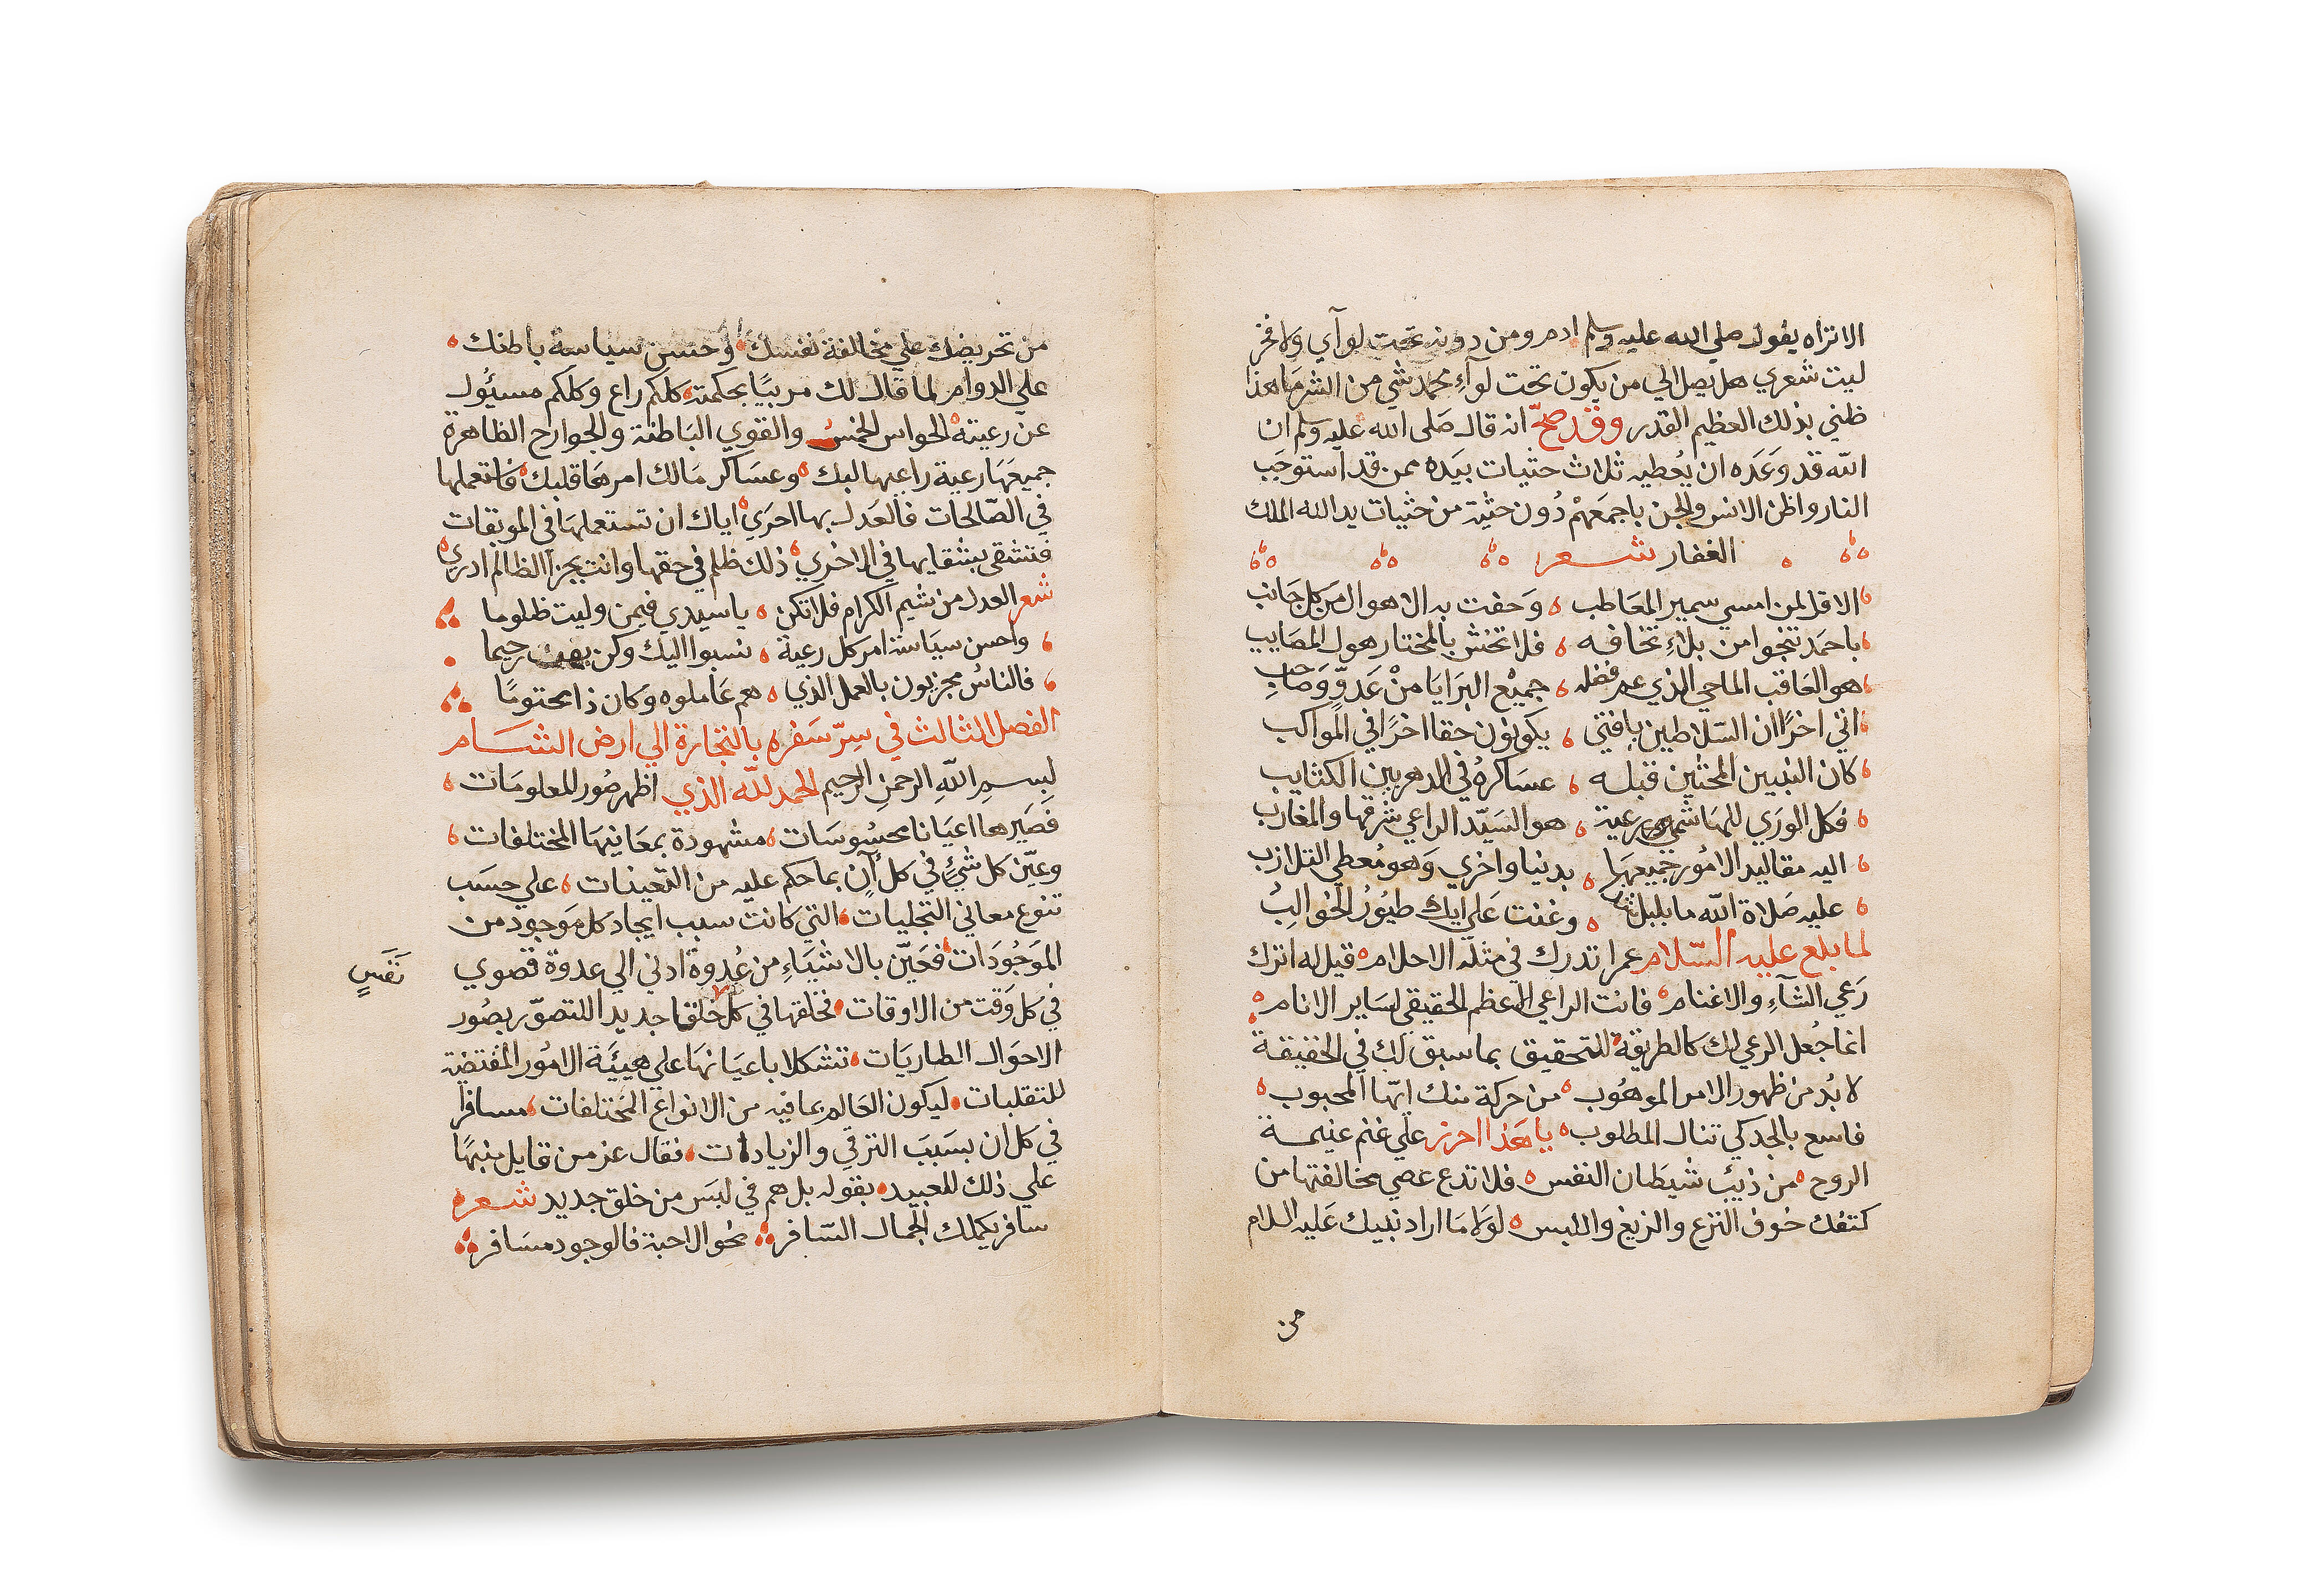 الا تراه يقول صلي الله عليه وسلم ادم ومن دونه تحت لوآي ولا فخر
ليت شعري هل يصل الي من يكون تحت لوآء محمد شي من الشر ما هذا
ظني بذلك العظيم القدر وقد صح انه قال صلى الله عليه وسلم ان
الله قد وعده ان يعطيه ثلاث حثيات بيده ممن قد استوجب
النار واظن الانس والجن باجمعهم دون حثية من حثيات يد الله الملك
الغفار شعر
الا قل لمن امسي سمير المعاطب وحفت به الاهوال من كل جانب
باحمد تنجوا من بلاء تخافه فلا تخش بالمختار هول المصايب
هو العاقب الماحي الذي عم فضله جميع البرايا من عدو وصاحب
اتي اخرا ان السلاطين يافتي يكونون حقا اخرا في المواكب
كان النبيين المحثين قبله عساكره في الدهر بين الكتايب
فكل الوري للهاشمي رعية هو السيد الراعي شرقها والمغارب
اليه مقاليد الامور جميعها بدنيا واخري وهو معطي
عليه صلاة الله ما بلبل وغنت علي ايك طيور
لما بلغ عليه السلام عمرا تدرك في مثله الاحلام قيل له اترك
رعي الشآء والاغنام فانت الراعي الاعظم الحقيقي لساير الانام
انما جعل الرعي لك كالطريقة للتحقيق بما سبق لك في الحقيقة
لا بد من ظهور الامر الموهوب من حركة منك ايها المحبوب
فاسع بالجد كي تنال المطلوب يا هذا احرز علي غنم غنيمة
الروح من ذيب شيطان النفس فلا تدع عصي مخالفتها من
كتفك خوف النزع والزيغ واللبس لولا ما اراد نبيك عليه السلام
من
من تحريضك علي مخالفة نفسك وحسن سياسة باطنك
علي الدوام لما قال لك مربيا بحكمته كلكم راع وكلكم مسيول
عن رعيته الحواس الخمس والقوي الباطنة والجوارح الظاهرة
جميعها رعية راعيها لبك وعساكر مالك امرها قلبك فاستعملها
في الصالحات فالعدل بها احري اياك ان تستعملها في الموبقات
فتشقي بشقايها في الاخري ذلك ظلم في حقها وانت بجزآ الظالم ادري
شعر العدل من شيم الكرام فلا تكن يا سيدي فيمن وليت ظلوما
واحسن سياسة امر كل رعية نسبوا اليك وكن بهم رحيما
فالناس مجزيون بالعمل الذي هم عاملوه وكان ذا محتوما
الفصل الثالث في سر سفره بالتجارة الي ارض الشام
بسم الله الرحمن الرحيم الحمد لله الذي اظهر صور المعلومات
فصيرها اعيانا محسوسات مشهودة بمعانيها المختلفات
وعين كل شيء في كل آن بما حكم عليه من التعينات علي حسب
تنوع معاني التجليات التي كانت سبب ايجاد كل موجود من
الموجودات فحين بالاشياء من عدوة ادني الي عدوة قصوي
في كل وقت من الاوقات فخلقها في كل خلقا جديدا لتتصور بصور
نفس
الاحوال الطاريات تتشكلا باعيانها علي هيئة الامور المقتضية
للتقلبات ليكون العالم بما فيه من الانواع المختلفات مسافرا
في كل ان بسبب الترقي والزيادات فقال عز من قايل منبها
علي ذلك للعبيد بقوله بل هم في لبس من خلق جديد شعر
سافر يكملك الجمال السافر نحو الاحبة فالوجود مسافر